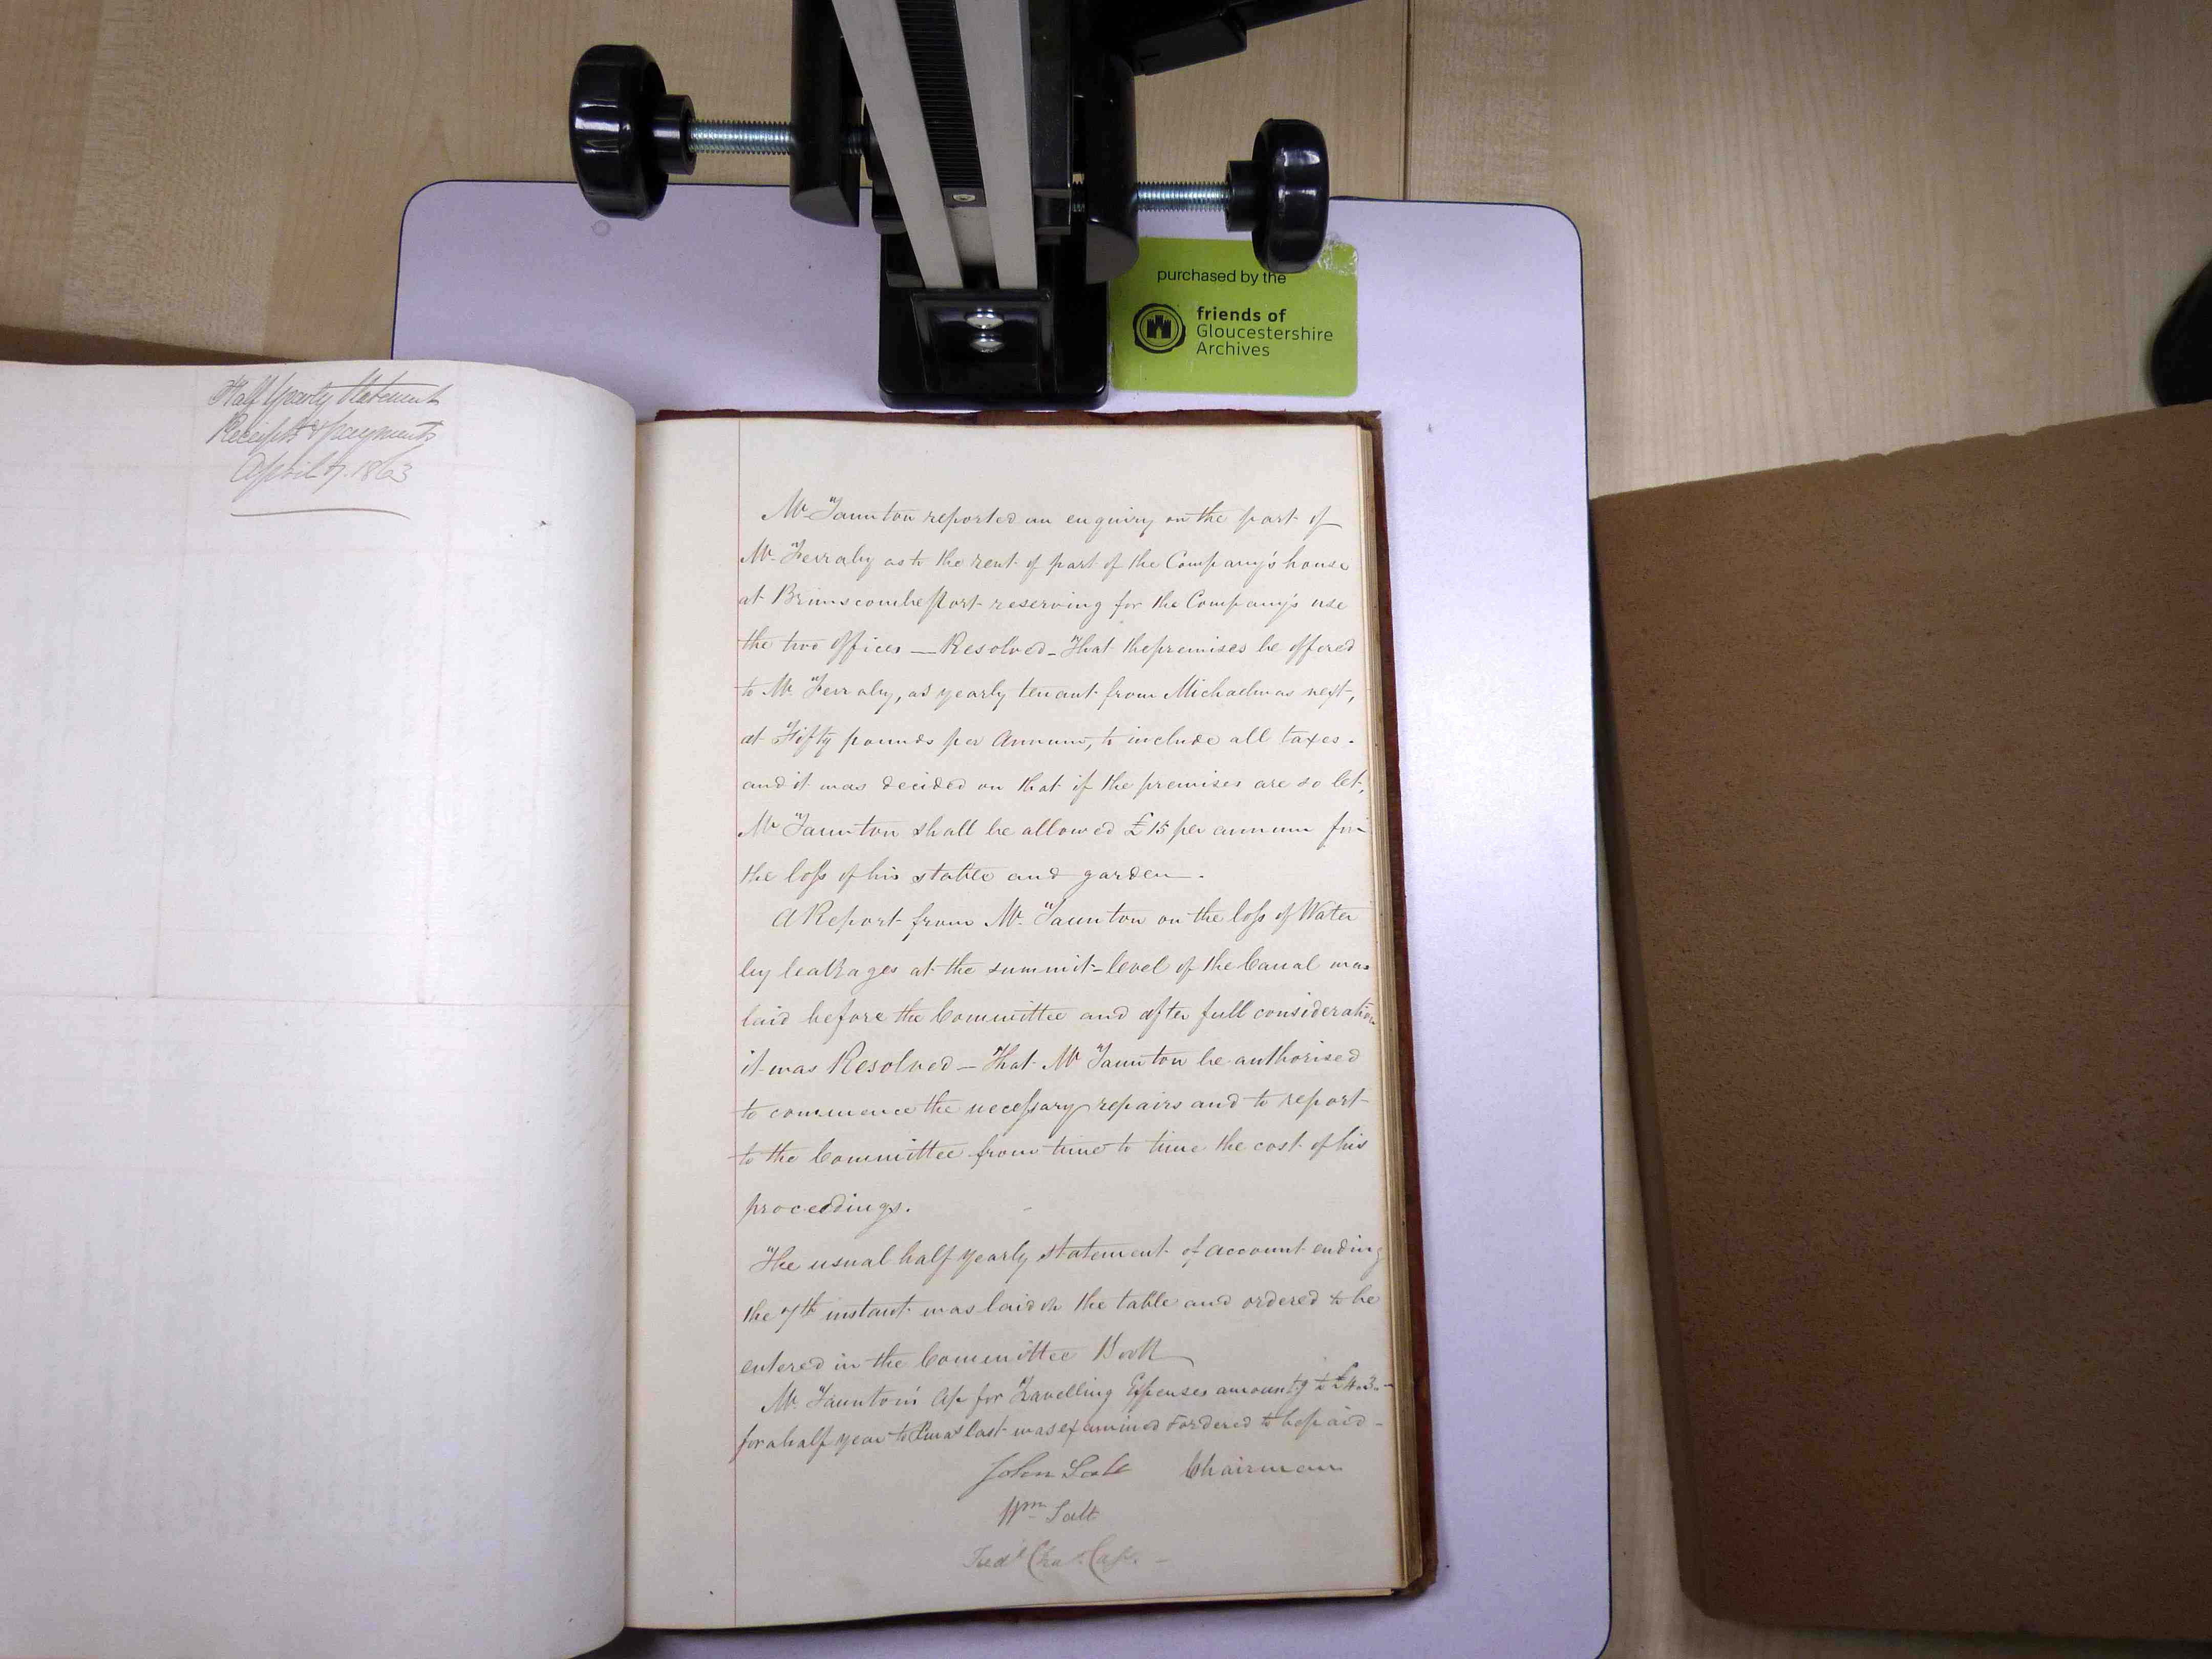 purchased by the
friends of
Gloucestershire
Archives
Half Yearly Statement
Receipts & payments
April 7. 1863
Mr Taunton reported an enquiry on the part of
Mr Ferraby as to the rent of part of the Company's house
at Brimscombe Port reserving for the Company's use
the two offices — Resolved - That the premises be offered
to Mr Ferraby, as yearly tenant from Michaelmas next,
at Fifty pounds per Annum, to include all taxes.
and it was decided on that if the premises are so let,
Mr Taunton shall be allowed £15 per annum for
the loss of his stable and garden.
A Report from Mr. Taunton on the loss of Water
by leakages at the summit-level of the Canal was
laid before the Committee and after full consideration
it was Resolved - That Mr Taunton be authorised
to commence the necessary repairs and to report
to the Committee from time to time the cost of his
proceedings.
The usual half yearly statement of account ending
the 7th instant was laid on the table and ordered to be
entered in the Committee Book
Mr. Taunton's for Travelling Expenses amountg to £4.3.-
for a half year to Xmas last was examined & ordered to be paid -
John Salt Chairman
Wm Salt
Fredk Chas.